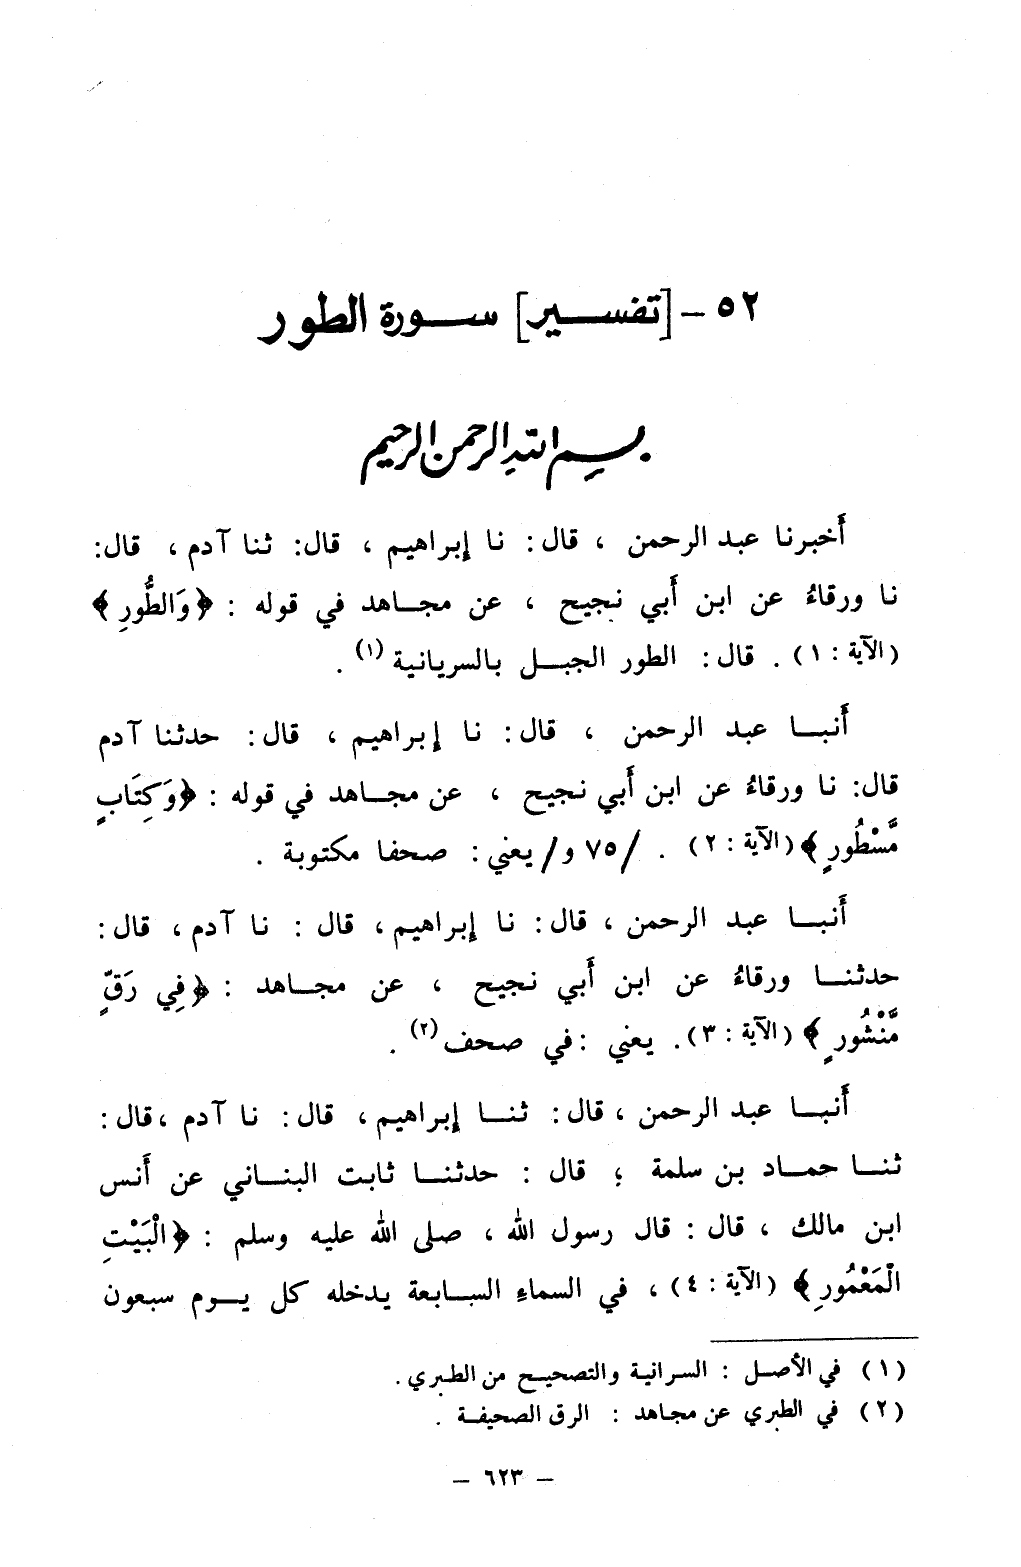 ٥٢ - [تفسير] سورة الطور
بسم الله الرحمن الرحيم
أخبرنا عبد الرحمن ، قال : نا إبراهيم ، قال: ثنا آدم ، قال:
نا ورقاءُ عن ابن أبي نجيح ، عن مجاهد في قوله : ﴿وَالطُّورِ﴾
(الآية : ١) . قال : الطور الجبل بالسريانية (١) .
أنبا عبد الرحمن ، قال : نا إبراهيم ، قال : حدثنا آدم
قال: نا ورقاءُ عن ابن أبي نجيح ، عن مجاهد في قوله : ﴿وَكِتَابٍ
مَّسْطُورٍ﴾ (الآية : ٢) . /٧٥ و/ يعني : صحفا مكتوبة .
أنبا عبد الرحمن ، قال : نا إبراهيم ، قال : نا آدم ، قال :
حدثنا ورقاءُ عن ابن أبي نجيح ، عن مجاهد : ﴿فِي رَقٍّ
مَّنْشُورٍ﴾ (الآية : ٣) . يعني : في صحف (٢) .
أنبا عبد الرحمن ، قال : ثنا إبراهيم ، قال : نا آدم ، قال :
ثنا حماد بن سلمة ؛ قال : حدثنا ثابت البناني عن أنس
ابن مالك ، قال : قال رسول الله ، صلى الله عليه وسلم : ﴿الْبَيْتِ
الْمَعْمُورِ﴾ (الآية : ٤) ، في السماءِ السابعة يدخله كل يوم سبعون
(١) في الأصل : السرانية والتصحيح من الطبري .
(٢) في الطبري عن مجاهد : الرق الصحيفة .
- ٦٢٣ -